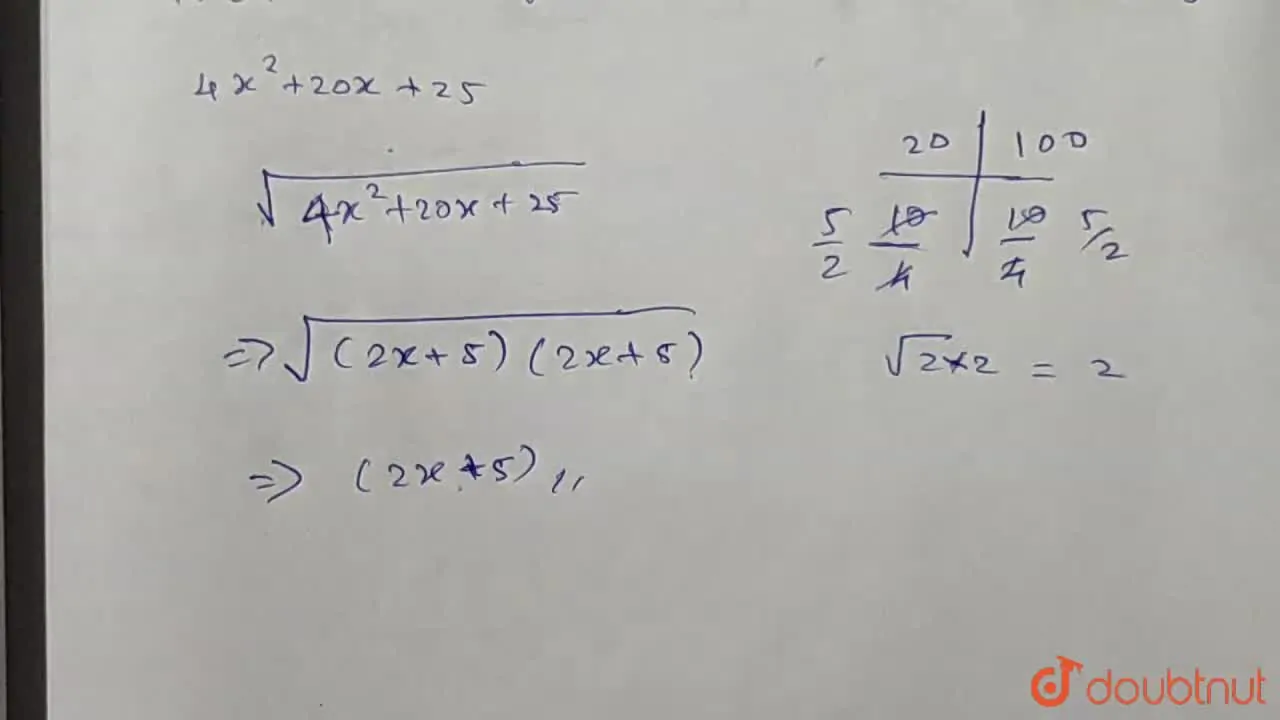 4x²+20x+25
√(4x²+20x+25)
⇒ √((2x+5)(2x+5))
⇒ (2x+5) //
20 | 100
5/2 10/4 | 10/4 5/2
√2×2 = 2
doubtnut